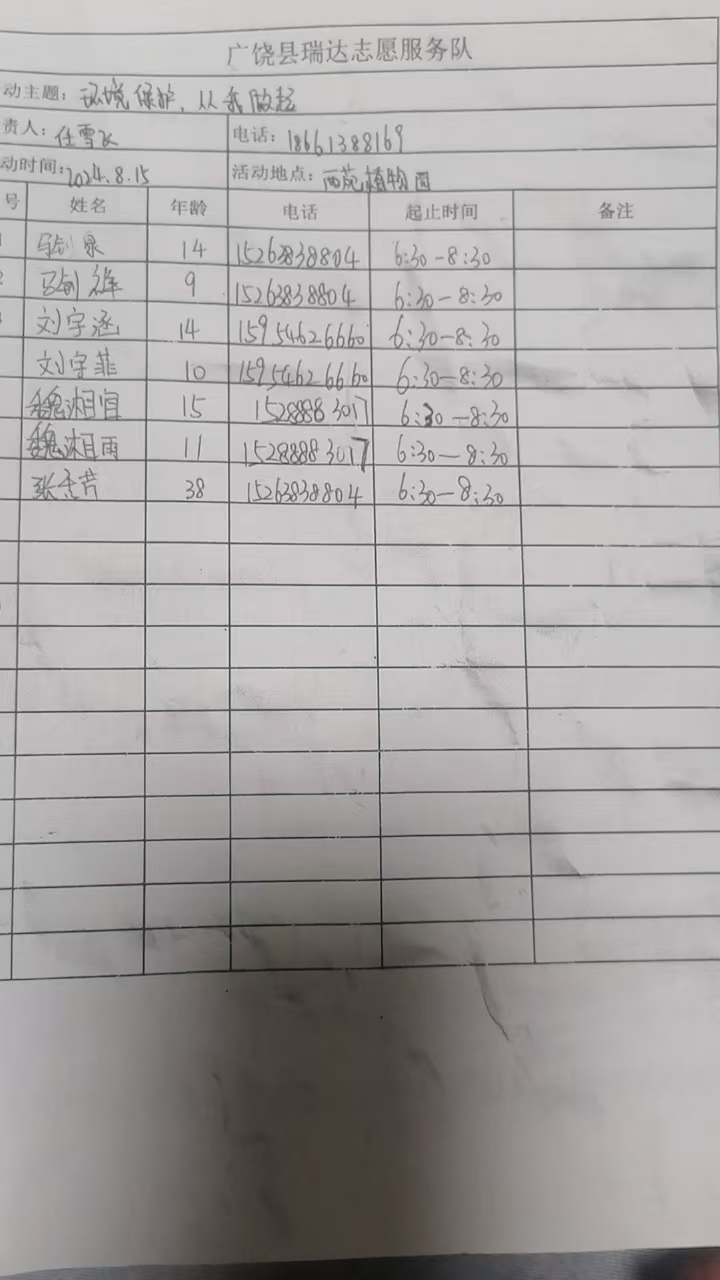 广饶县瑞达志愿服务队
动主题: 环境保护，从我做起
责人: 任雪飞 电话: 18661388169
动时间: 2024.8.15 活动地点: 西苑植物园
号 姓名 年龄 电话 起止时间 备注
14 15263838804 6:30-8:30
9 15263838804 6:30-8:30
刘宇涵 14 15954626660 6:30-8:30
刘宇菲 10 15954626660 6:30-8:30
魏湘宜 15 15288883017 6:30-8:30
魏湘雨 11 15288883017 6:30-8:30
38 15263838804 6:30-8:30